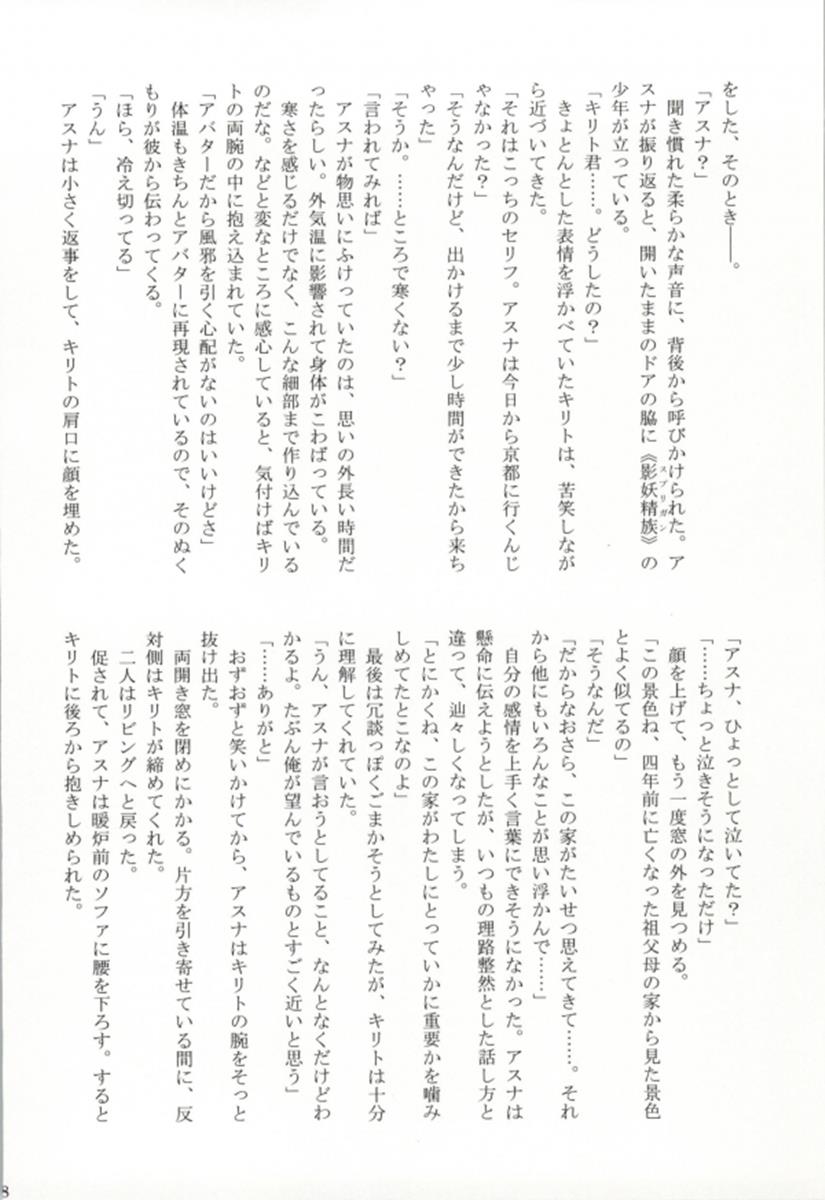 をした、そのとき――。
「アスナ？」
聞き慣れた柔らかな声音に、背後から呼びかけられた。ア
スナが振り返ると、開いたままのドアの脇に《影妖精族》の
スプリガン
少年が立っている。
「キリト君……。どうしたの？」
きょとんとした表情を浮かべていたキリトは、苦笑しなが
ら近づいてきた。
「それはこっちのセリフ。アスナは今日から京都に行くんじ
ゃなかった？」
「そうなんだけど、出かけるまで少し時間ができたから来ち
ゃった」
「そうか。……ところで寒くない？」
「言われてみれば」
アスナが物思いにふけっていたのは、思いの外長い時間だ
ったらしい。外気温に影響されて身体がこわばっている。
寒さを感じるだけでなく、こんな細部まで作り込んでいる
のだな。などと変なところに感心していると、気付けばキリ
トの両腕の中に抱え込まれていた。
「アバターだから風邪を引く心配がないのはいいけどさ」
体温もきちんとアバターに再現されているので、そのぬく
もりが彼から伝わってくる。
「ほら、冷え切ってる」
「うん」
アスナは小さく返事をして、キリトの肩口に顔を埋めた。
「アスナ、ひょっとして泣いてた？」
「……ちょっと泣きそうになっただけ」
顔を上げて、もう一度窓の外を見つめる。
「この景色ね、四年前に亡くなった祖父母の家から見た景色
とよく似てるの」
「そうなんだ」
「だからなおさら、この家がたいせつ思えてきて……。それ
から他にもいろんなことが思い浮かんで……」
自分の感情を上手く言葉にできそうになかった。アスナは
懸命に伝えようとしたが、いつもの理路整然とした話し方と
違って、辿々しくなってしまう。
「とにかくね、この家がわたしにとっていかに重要かを噛み
しめてたとこなのよ」
最後は冗談っぽくごまかそうとしてみたが、キリトは十分
に理解してくれていた。
「うん、アスナが言おうとしてること、なんとなくだけどわ
かるよ。たぶん俺が望んでいるものとすごく近いと思う」
「……ありがと」
おずおずと笑いかけてから、アスナはキリトの腕をそっと
抜け出た。
両開き窓を閉めにかかる。片方を引き寄せている間に、反
対側はキリトが締めてくれた。
二人はリビングへと戻った。
促されて、アスナは暖炉前のソファに腰を下ろす。すると
キリトに後ろから抱きしめられた。
8